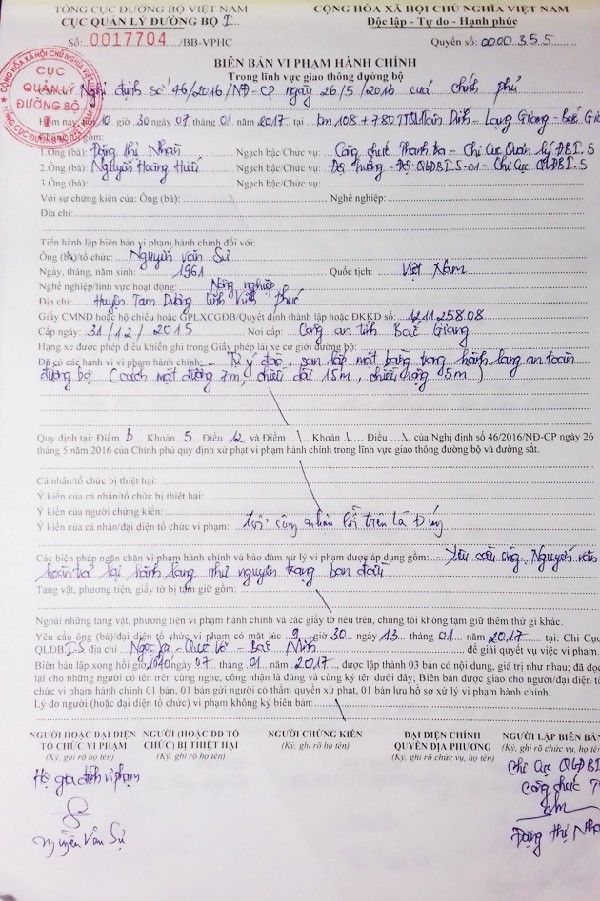 TỔNG CỤC ĐƯỜNG BỘ VIỆT NAM
CỤC QUẢN LÝ ĐƯỜNG BỘ I...
Số: 0017704 /BB-VPHC
CỘNG HÒA XÃ HỘI CHỦ NGHĨA VIỆT NAM
Độc lập - Tự do - Hạnh phúc
Quyển số: 0000355
CỤC QUẢN LÝ ĐƯỜNG BỘ I
BIÊN BẢN VI PHẠM HÀNH CHÍNH
Trong lĩnh vực giao thông đường bộ
Nghị định số 46/2016/NĐ-CP ngày 26/5/2016 của chính phủ
Hôm nay 10 giờ 30 ngày 07 tháng 01 năm 2017 tại km 108 + 780 Tân Dĩnh - Lạng Giang - Bắc
gồm:
1.Ông (bà): Đặng Thị Nhàn Ngạch bậc/Chức vụ: Công chức Thanh tra - Chi Cục Quản lý ĐBI.5
2.Ông (bà): Nguyễn Hoàng Ngạch bậc/Chức vụ: Đội trưởng - Đội QLĐBI.5-01 - Chi Cục QLĐBI.5
3.Ông (bà): Ngạch bậc/Chức vụ:
Với sự chứng kiến của: Ông (bà): Nghề nghiệp:
Địa chỉ:
Tiến hành lập biên bản vi phạm hành chính đối với:
Ông (Bà)/tổ chức: Nguyễn Văn Sử
Ngày, tháng, năm sinh: 1961 Quốc tịch: Việt Nam
Nghề nghiệp/lĩnh vực hoạt động: Nông nghiệp
Địa chỉ: Huyện Tam Dương tỉnh Vĩnh Phúc
Giấy CMND hoặc hộ chiếu hoặc GPLXCGĐB/Quyết định thành lập hoặc ĐKKD số: 121125808
Cấp ngày: 31/12/2015 Nơi cấp: Công an tỉnh Bắc Giang
Hạng xe được phép điều khiển ghi trong Giấy phép lái xe cơ giới đường bộ:
Đã có các hành vi vi phạm hành chính: Tự ý đào, san lấp mặt bằng trong hành lang an toàn
đường bộ (cách mặt đường 7m, chiều dài 15m, chiều rộng 5m)
Quy định tại: Điểm b Khoản 5 Điều 12 và Điểm \ Khoản \ Điều \ của Nghị định số 46/2016/NĐ-CP ngày 26
tháng 5 năm 2016 của Chính phủ quy định xử phạt vi phạm hành chính trong lĩnh vực giao thông đường bộ và đường sắt.
Cá nhân/tổ chức bị thiệt hại:
Ý kiến của cá nhân/tổ chức bị thiệt hại:
Ý kiến của người chứng kiến:
Ý kiến của cá nhân/đại diện tổ chức vi phạm: Tôi công nhận lỗi trên là Đúng
Các biện pháp ngăn chặn vi phạm hành chính và bảo đảm xử lý vi phạm được áp dụng gồm: Yêu cầu ông Nguyễn Văn
hoàn trả lại hành lang như nguyên trạng ban đầu
Tang vật, phương tiện, giấy tờ bị tạm giữ gồm:
Ngoài những tang vật, phương tiện vi phạm hành chính và các giấy tờ nêu trên, chúng tôi không tạm giữ thêm thứ gì khác.
Yêu cầu ông (bà)/đại diện tổ chức vi phạm có mặt lúc 9 giờ 30 ngày 13 tháng 01 năm 2017 tại: Chi Cục
QLĐBI.5 địa chỉ - Quế Võ - Bắc Ninh để giải quyết vụ việc vi phạm.
Biên bản lập xong hồi giờ ngày 07 tháng 01 năm 2017, được lập thành 03 bản có nội dung, giá trị như nhau; đã đọc
lại cho những người có tên trên cùng nghe, công nhận là đúng và cùng ký tên dưới đây; Biên bản được giao cho người/đại diện tổ
chức vi phạm hành chính 01 bản, 01 bản gửi người có thẩm quyền xử phạt, 01 bản lưu hồ sơ xử lý vi phạm hành chính.
Lý do người (hoặc đại diện tổ chức) vi phạm không ký biên bản:
NGƯỜI HOẶC ĐẠI DIỆN TỔ CHỨC VI PHẠM
(Ký, ghi rõ họ tên)
NGƯỜI (HOẶC ĐD TỔ CHỨC) BỊ THIỆT HẠI
(Ký, ghi rõ họ tên)
NGƯỜI CHỨNG KIẾN
(Ký, ghi rõ họ tên)
ĐẠI DIỆN CHÍNH QUYỀN ĐỊA PHƯƠNG
(Ký, ghi rõ chức vụ, họ tên)
NGƯỜI LẬP BIÊN BẢN
(Ký, ghi rõ chức vụ, họ tên)
Hộ gia đình vi phạm
Nguyễn Văn Sử
Chi Cục QLĐBI
Công chức T
Đặng Thị Nhàn